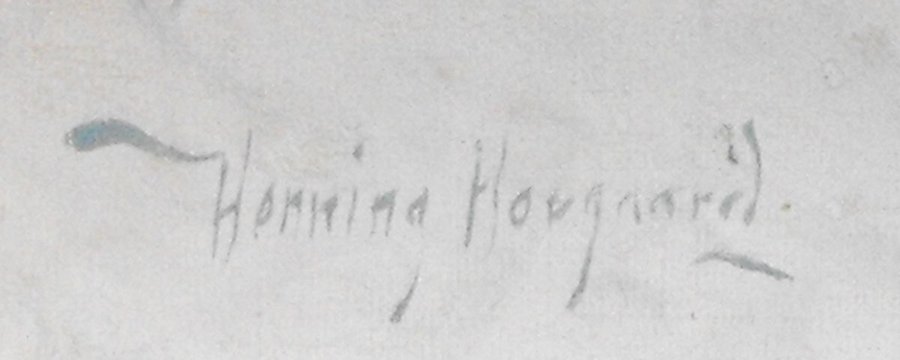 Henning Hougaard.